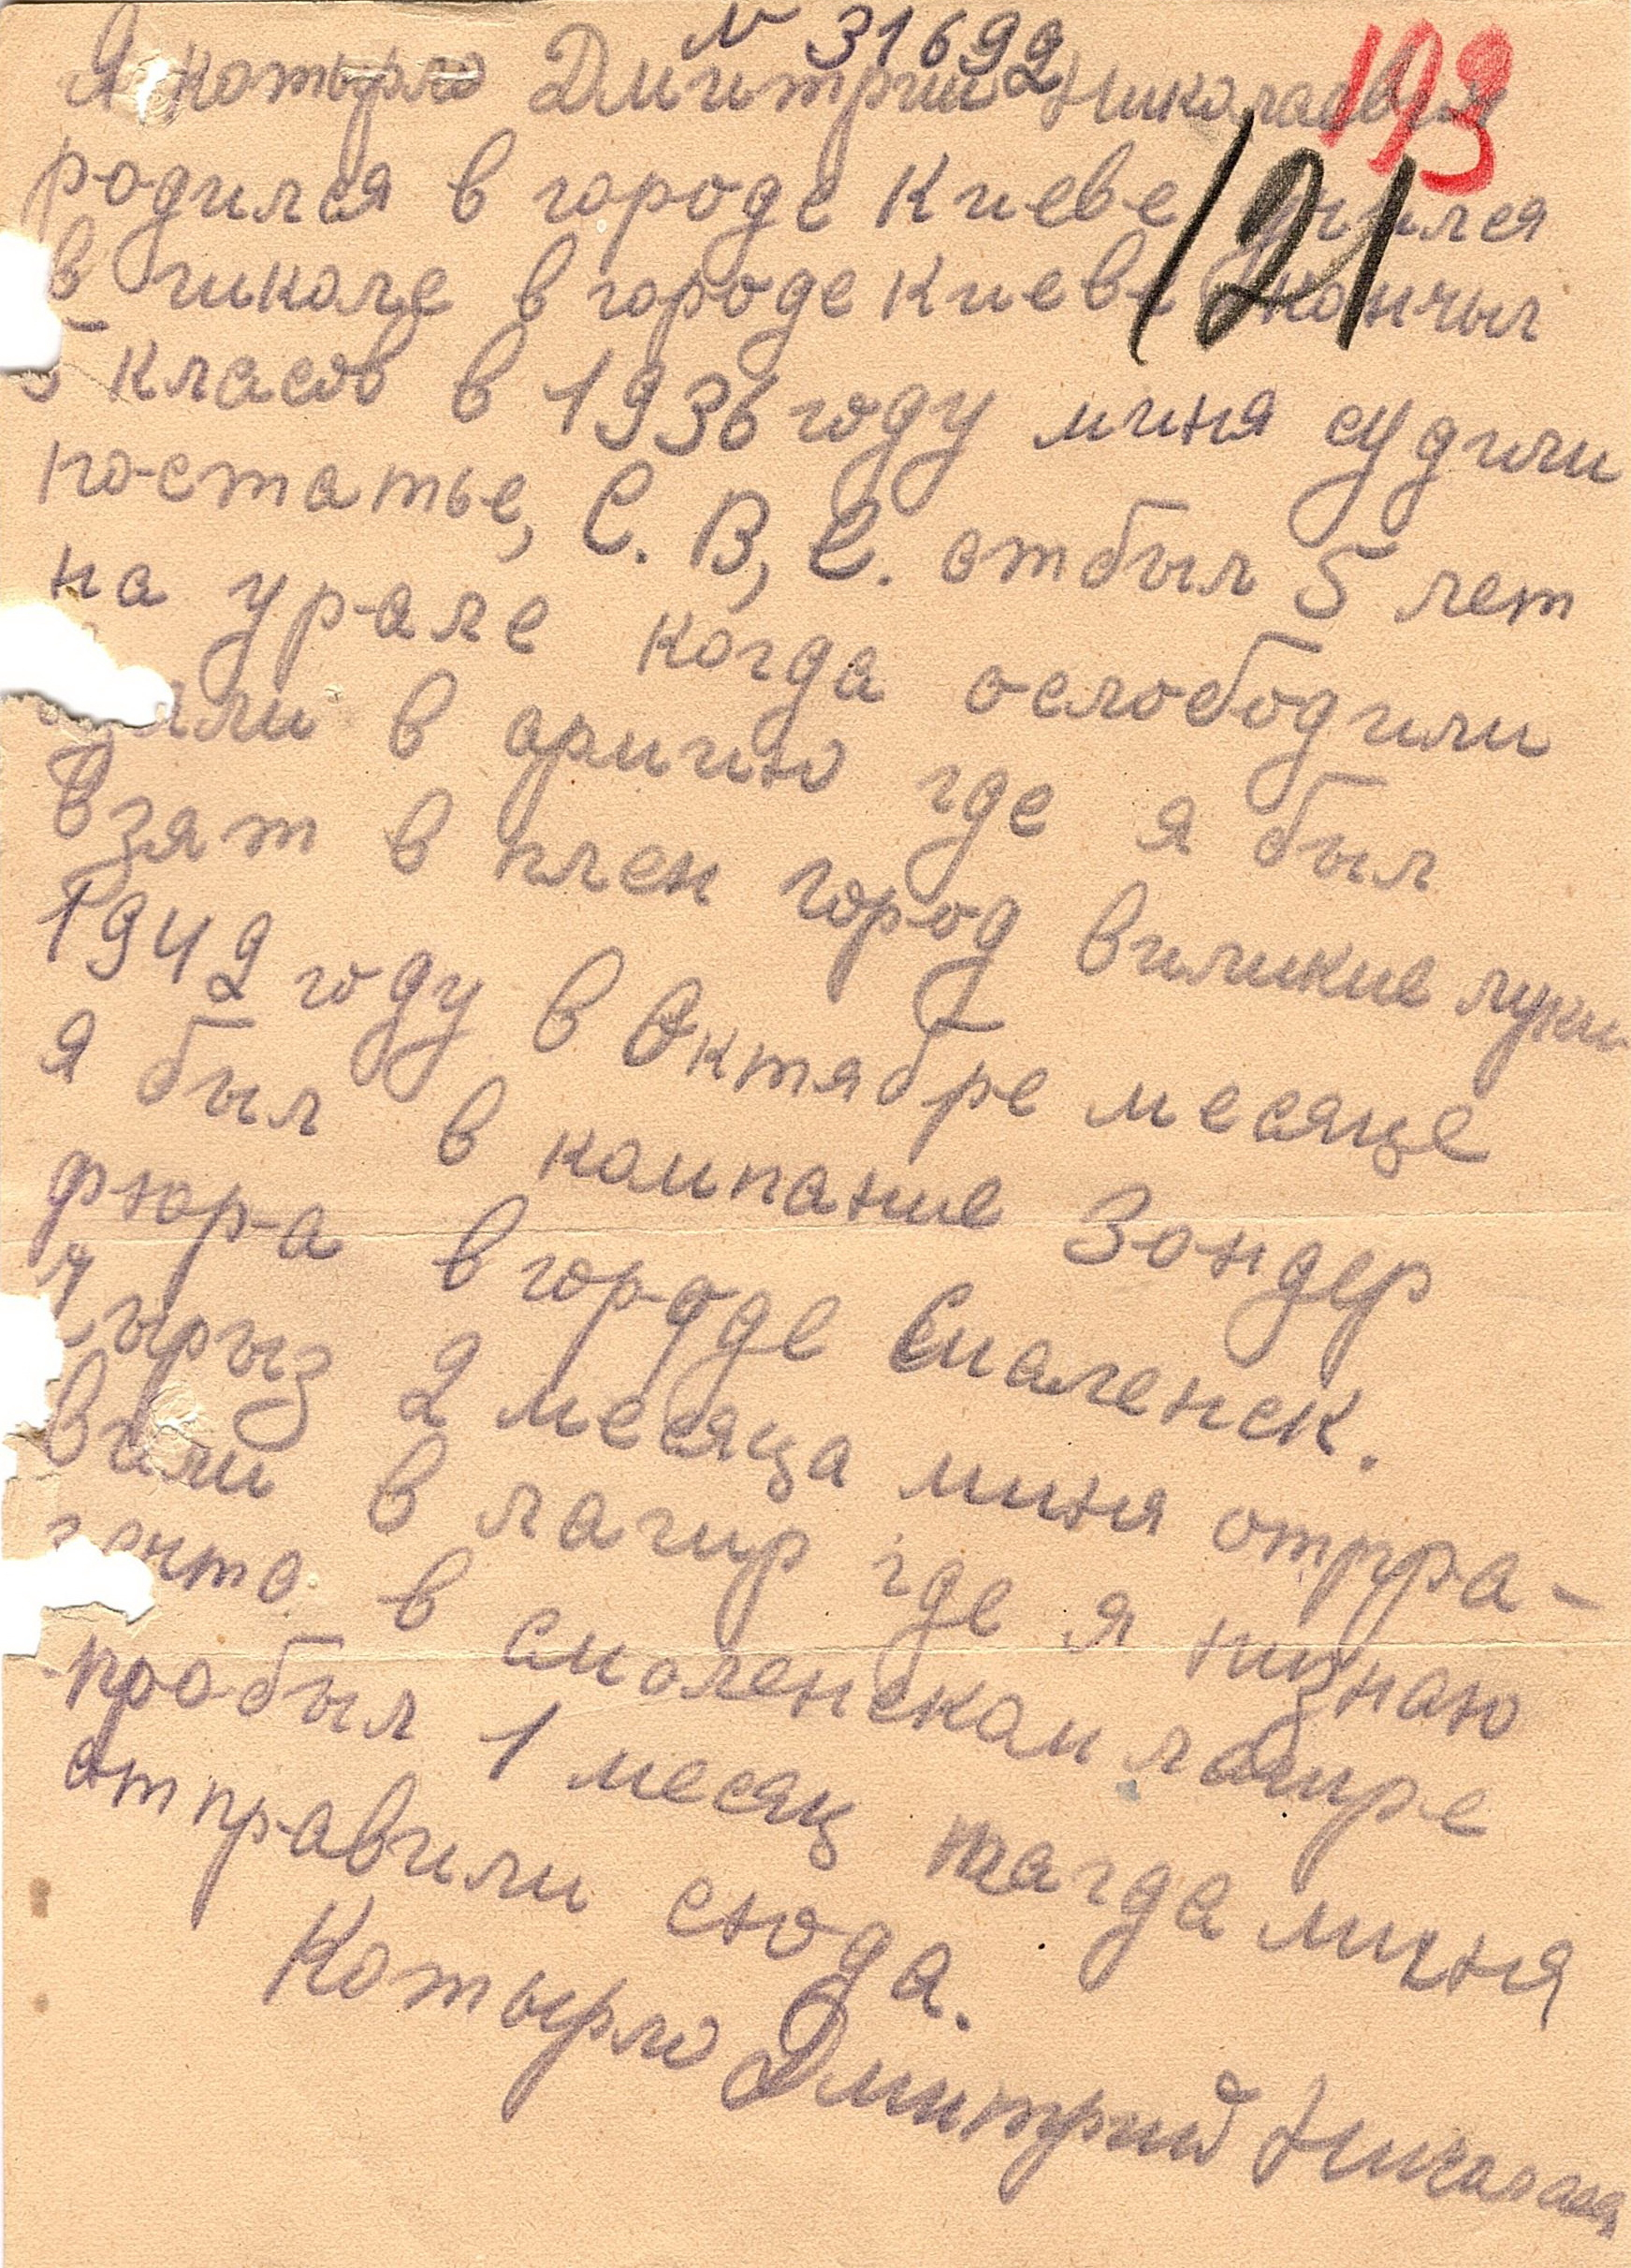 N 31692
193
121
Я котырло Дмитрий Николаевич
родился в городе Киеве учился
в школе в городе Киеве кончыл
5 класов в 1936 году миня судили
по-статье, С. В, Е. отбыл 5 лет
на урале когда ослободили
в армию где я был
взят в плен город виликие луки
1942 году в Октябре месяце
я был в компание Зондер
фюра в городе Смаленск.
Чырыз 2 месяца миня отпра-
вили в лагир где я низнаю
в смоленскам лагире
пробыл 1 месяц тагда миня
отправили сюда.
Котырло Дмитрий